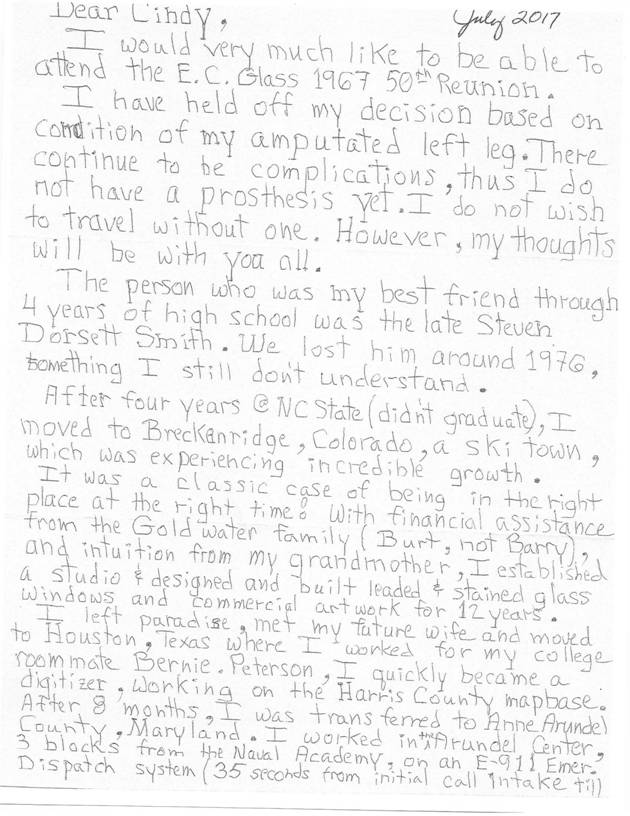 Dear Cindy,
July 2017
I would very much like to be able to
attend the E.C. Glass 1967 50th Reunion.
I have held off my decision based on
condition of my amputated left leg. There
continue to be complications, thus I do
not have a prosthesis yet. I do not wish
to travel without one. However, my thoughts
will be with you all.
The person who was my best friend through
4 years of high school was the late Steven
Dorsett Smith. We lost him around 1976,
something I still don't understand.
After four years @ NC State (didn't graduate), I
moved to Breckenridge, Colorado, a ski town,
which was experiencing incredible growth.
It was a classic case of being in the right
place at the right time! With financial assistance
from the Gold water family (Burt, not Barry),
and intuition from my grandmother, I established
a studio & designed and built leaded & stained glass
windows and commercial art work for 12 years.
I left paradise, met my future wife and moved
to Houston, Texas where I worked for my college
roommate Bernie Peterson, I quickly became a
digitizer, working on the Harris County mapbase.
After 8 months, I was transferred to Anne Arundel
County, Maryland. I worked in the Arundel Center,
3 blocks from the Naval Academy, on an E-911 Emer.
Dispatch system (35 seconds from initial call intake till